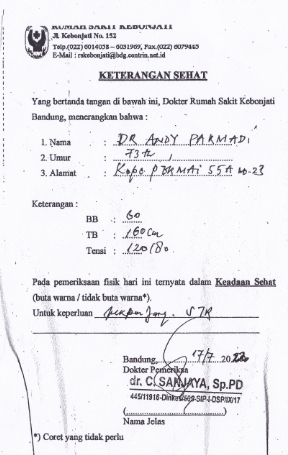 RUMAH SAKIT KEBONJATI
Jl. Kebonjati No. 152
Telp.(022) 6014058 – 6031969, Fax.(022) 6079445
E-Mail : rskebonjati@bdg.centrin.net.id
KETERANGAN SEHAT
Yang bertanda tangan di bawah ini, Dokter Rumah Sakit Kebonjati
Bandung, menerangkan bahwa :
1. Nama : DR ANDY PARMADI
2. Umur : 73 th
3. Alamat : Kopo PERMAI 55A no-23
Keterangan :
BB : 60
TB : 160 cm
Tensi : 120/80
Pada pemeriksaan fisik hari ini ternyata dalam Keadaan Sehat
(buta warna / tidak buta warna*).
Untuk keperluan STR
Bandung, 17/7 20
Dokter Pemeriksa
dr. C. SANJAYA, Sp.PD
Nama Jelas
*) Coret yang tidak perlu